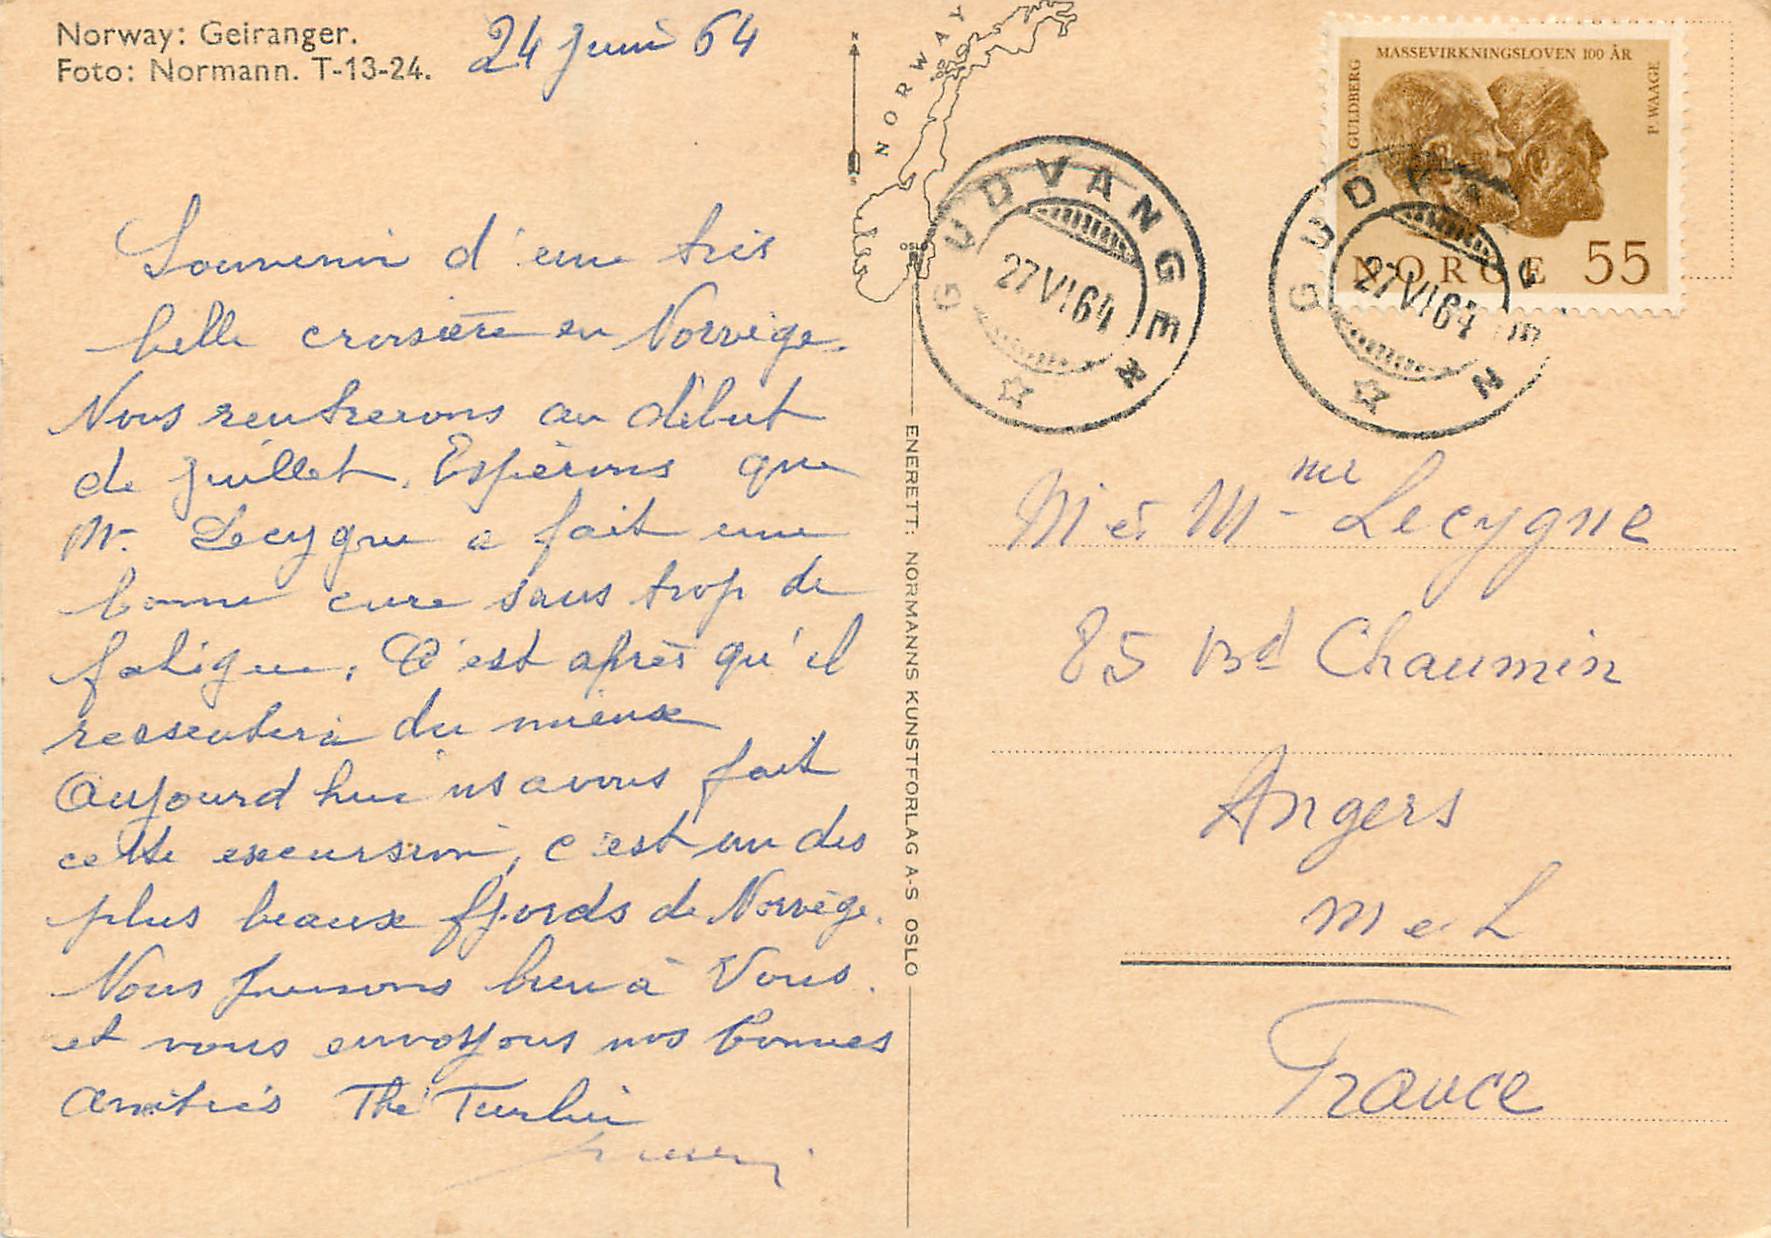 Norway: Geiranger.
Foto: Normann. T-13-24.
24 Juin 64
Souvenir d'une très
belle croisière en Norvège.
Nous rentrerons au début
de juillet. Espérons que
Mr. Lecygne a fait une
bonne cure sans trop de
fatigue. C'est après qu'il
ressentira du mieux
Aujourd'hui ns avons fait
cette excursion, c'est un des
plus beaux fjords de Norvège.
Nous pensons bien à Vous.
et vous envoyons nos bonnes
amitiés Thé
NORWAY
N
S
OSLO
ENERETT: NORMANNS KUNSTFORLAG A-S OSLO
GUDVANGEN
27 VI 64
MASSEVIRKNINGSLOVEN 100 ÅR
GULDBERG
P. WAAGE
NORGE 55
GUDVANGEN
27 VI 64
M et Mme Lecygne
85 Bd Chaumin
Angers
M e L
France